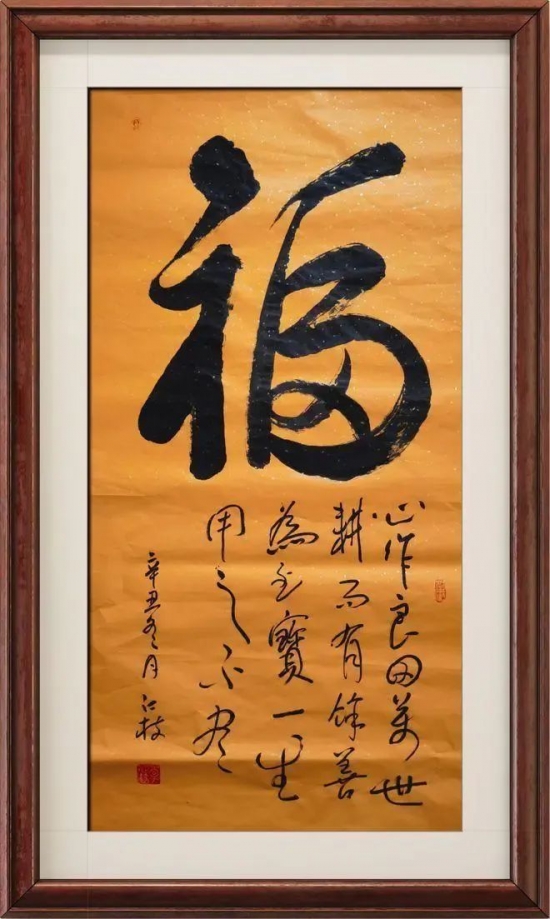 福
心作良田萬世
耕而有餘善
為至寶一生
用之不尽
辛丑冬月